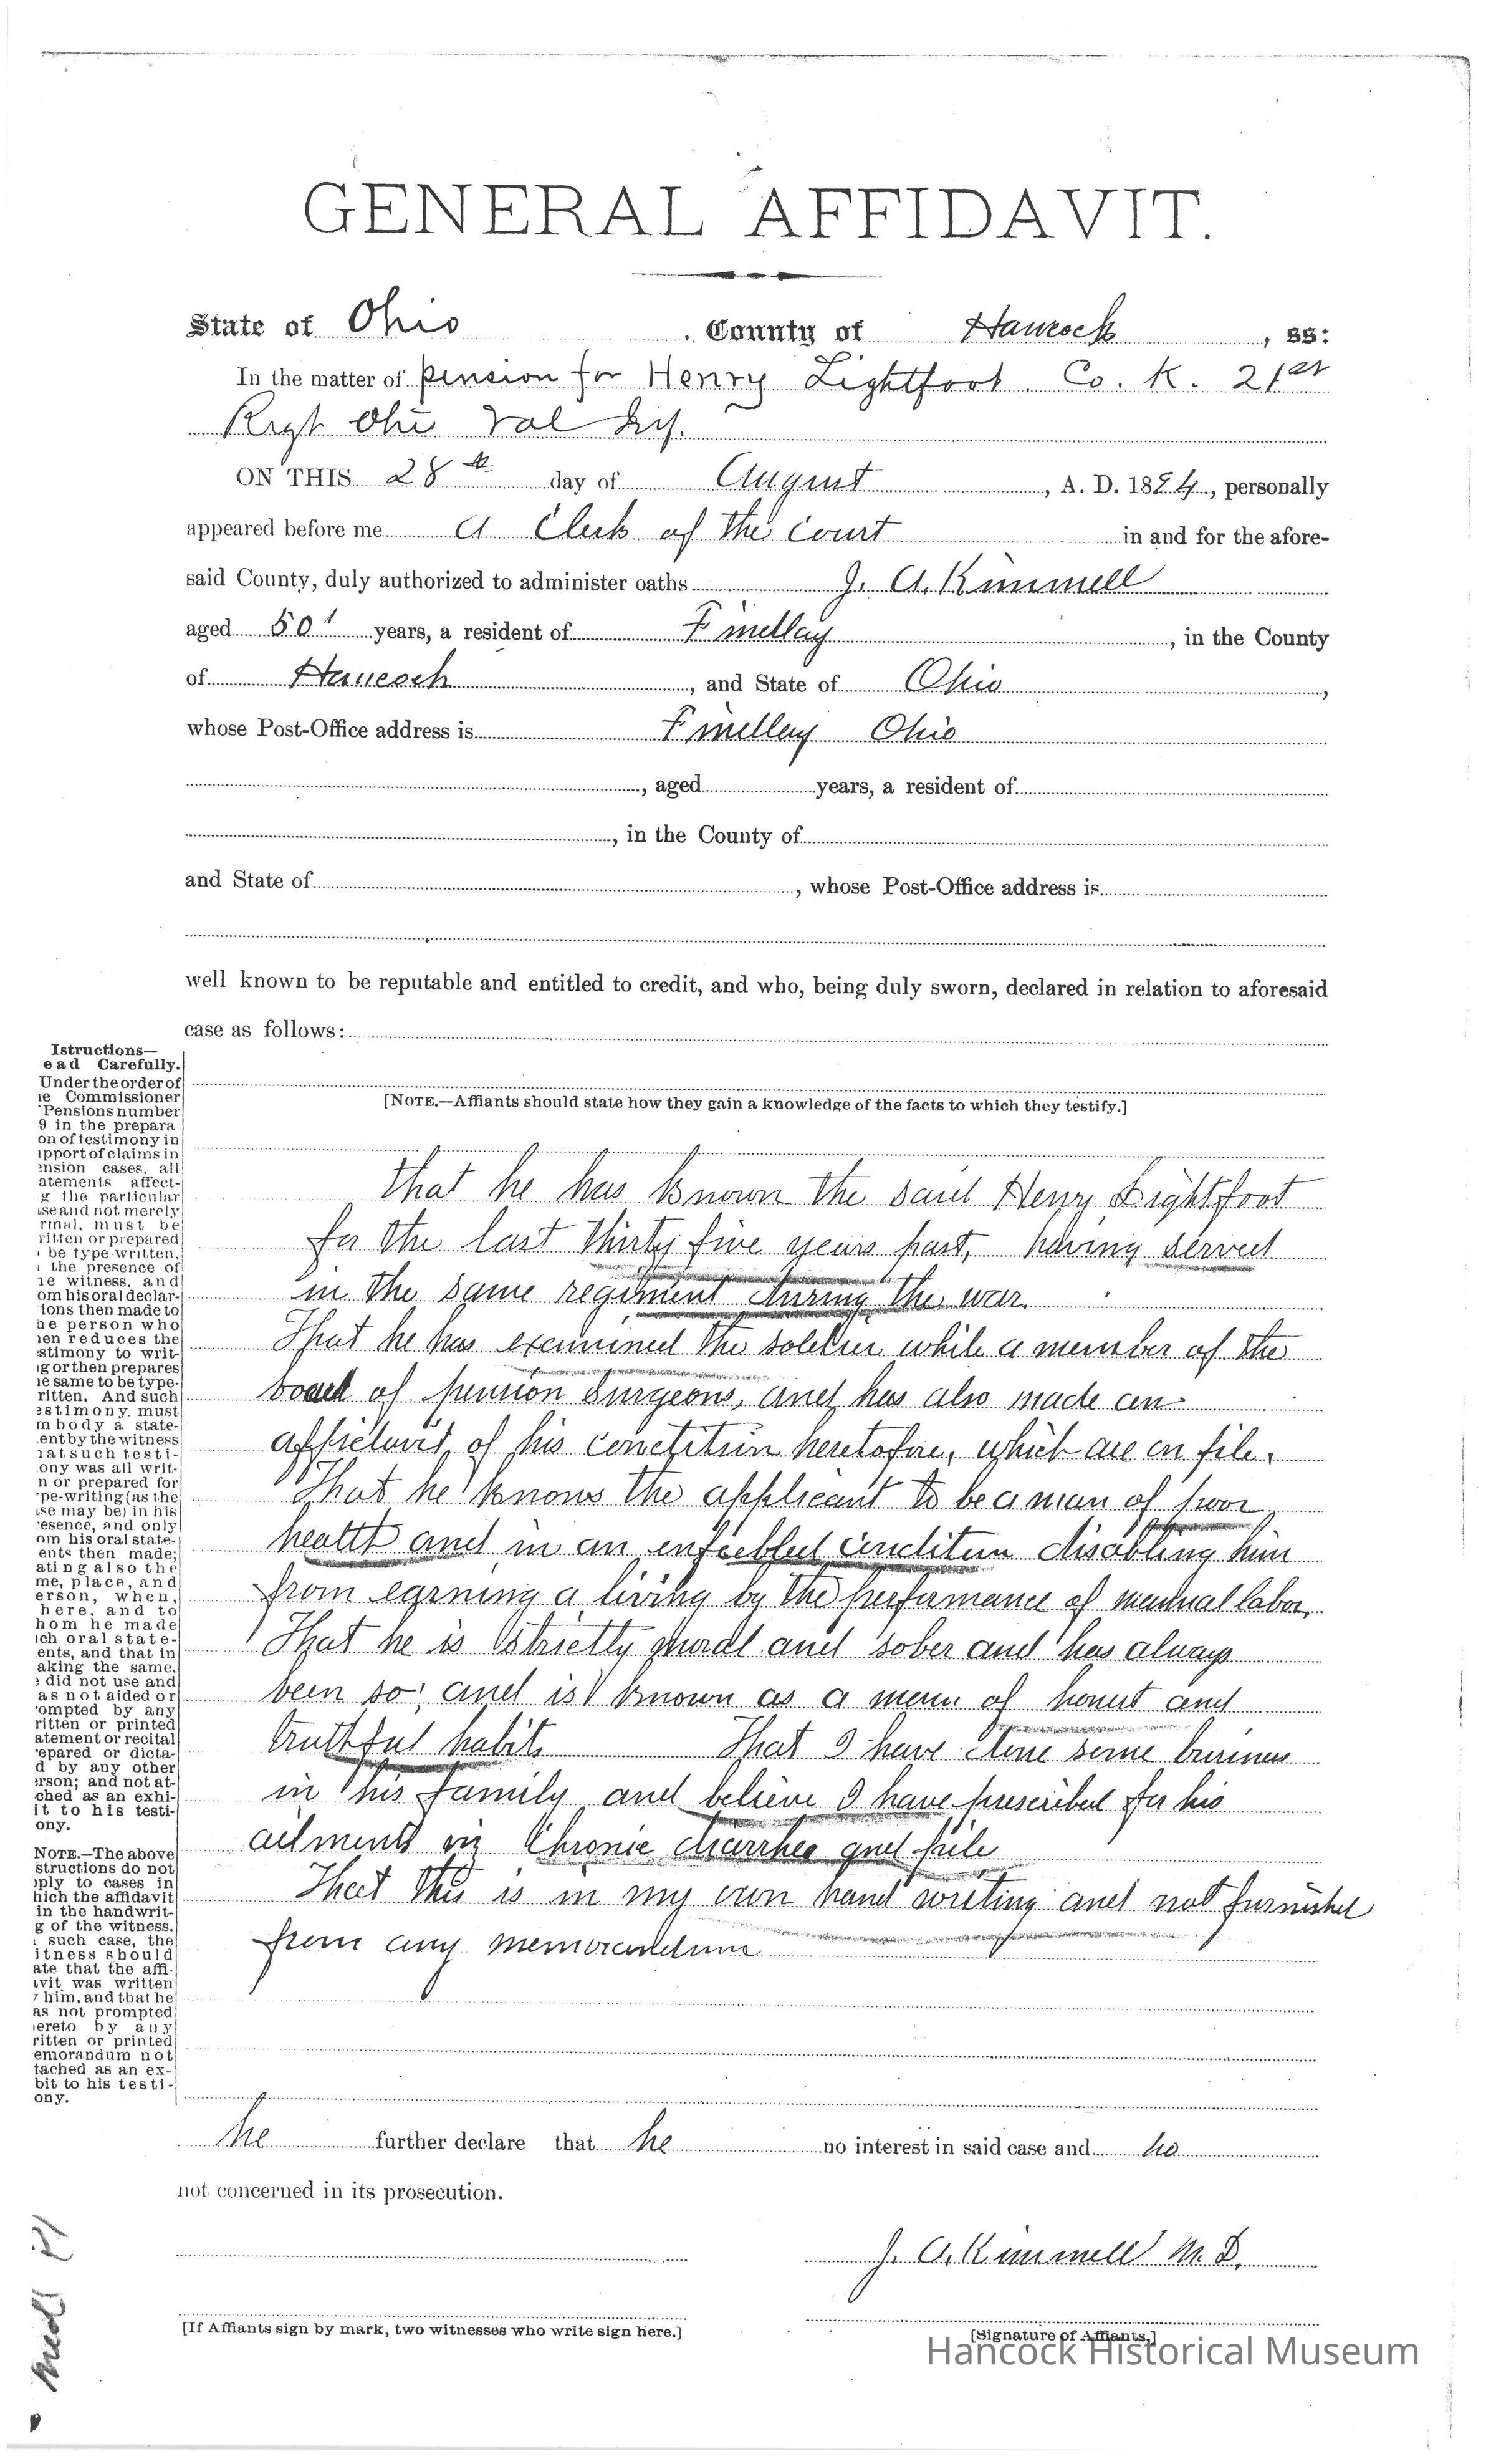 GENERAL AFFIDAVIT.
State of Ohio . County of Hancock , ss:
In the matter of pension for Henry Lightfoot. Co. K. 21st
Regt Ohi Vol Inf.
ON THIS 28th day of August , A. D. 1894, personally
appeared before me A Clerk of the Court in and for the afore-
said County, duly authorized to administer oaths J. A. Kimmell
aged 50 years, a resident of Findlay , in the County
of Hancock , and State of Ohio ,
whose Post-Office address is Findlay Ohio
, aged years, a resident of
, in the County of
and State of , whose Post-Office address is
well known to be reputable and entitled to credit, and who, being duly sworn, declared in relation to aforesaid
case as follows:
[NOTE.—Affiants should state how they gain a knowledge of the facts to which they testify.]
that he has known the said Henry Lightfoot
for the last thirty five years past, having served
in the same regiment during the war.
That he has examined the soldier while a member of the
board of pension surgeons, and has also made an
affidavit of his condition heretofore, which are on file.
That he knows the applicant to be a man of poor
health and in an enfeebled condition disabling him
from earning a living by the performance of manual labor.
That he is strictly moral and sober and has always
been so; and is known as a man of honest and
truthful habits That I have done some business
in his family and believe I have prescribed for his
ailments viz Chronic diarrhea and pile
That this is in my own hand writing and not furnished
from any memorandum
he further declare that he no interest in said case and
not concerned in its prosecution.
J. A. Kimmell M. D.
[If Affiants sign by mark, two witnesses who write sign here.]
[Signature of Affiants.]
Hancock Historical Museum
Istructions—
ead Carefully.
Under the order of
ie Commissioner
Pensions number
9 in the prepara
on of testimony in
ipport of claims in
ension cases, all
atements affect-
g the particular
ise and not merely
rmal, must be
ritten or prepared
be type written,
the presence of
ie witness, and
om his oral declar-
ions then made to
ie person who
ien reduces the
stimony to writ-
ig or then prepares
ie same to be type-
ritten. And such
estimony must
mbody a state-
ent by the witness
iat such testi-
ony was all writ-
n or prepared for
pe-writing (as the
ise may be) in his
esence, and only
om his oral state-
ents then made;
ating also the
me, place, and
erson, when,
here, and to
hom he made
ich oral state-
ents, and that in
aking the same,
did not use and
as not aided or
ompted by any
ritten or printed
atement or recital
epared or dicta-
d by any other
erson; and not at-
ched as an exhi-
it to his testi-
ony.
NOTE.—The above
structions do not
pply to cases in
hich the affidavit
in the handwrit-
g of the witness.
such case, the
itness should
ate that the affi-
avit was written
him, and that he
as not prompted
iereto by any
ritten or printed
emorandum not
tached as an ex-
bit to his testi-
ony.